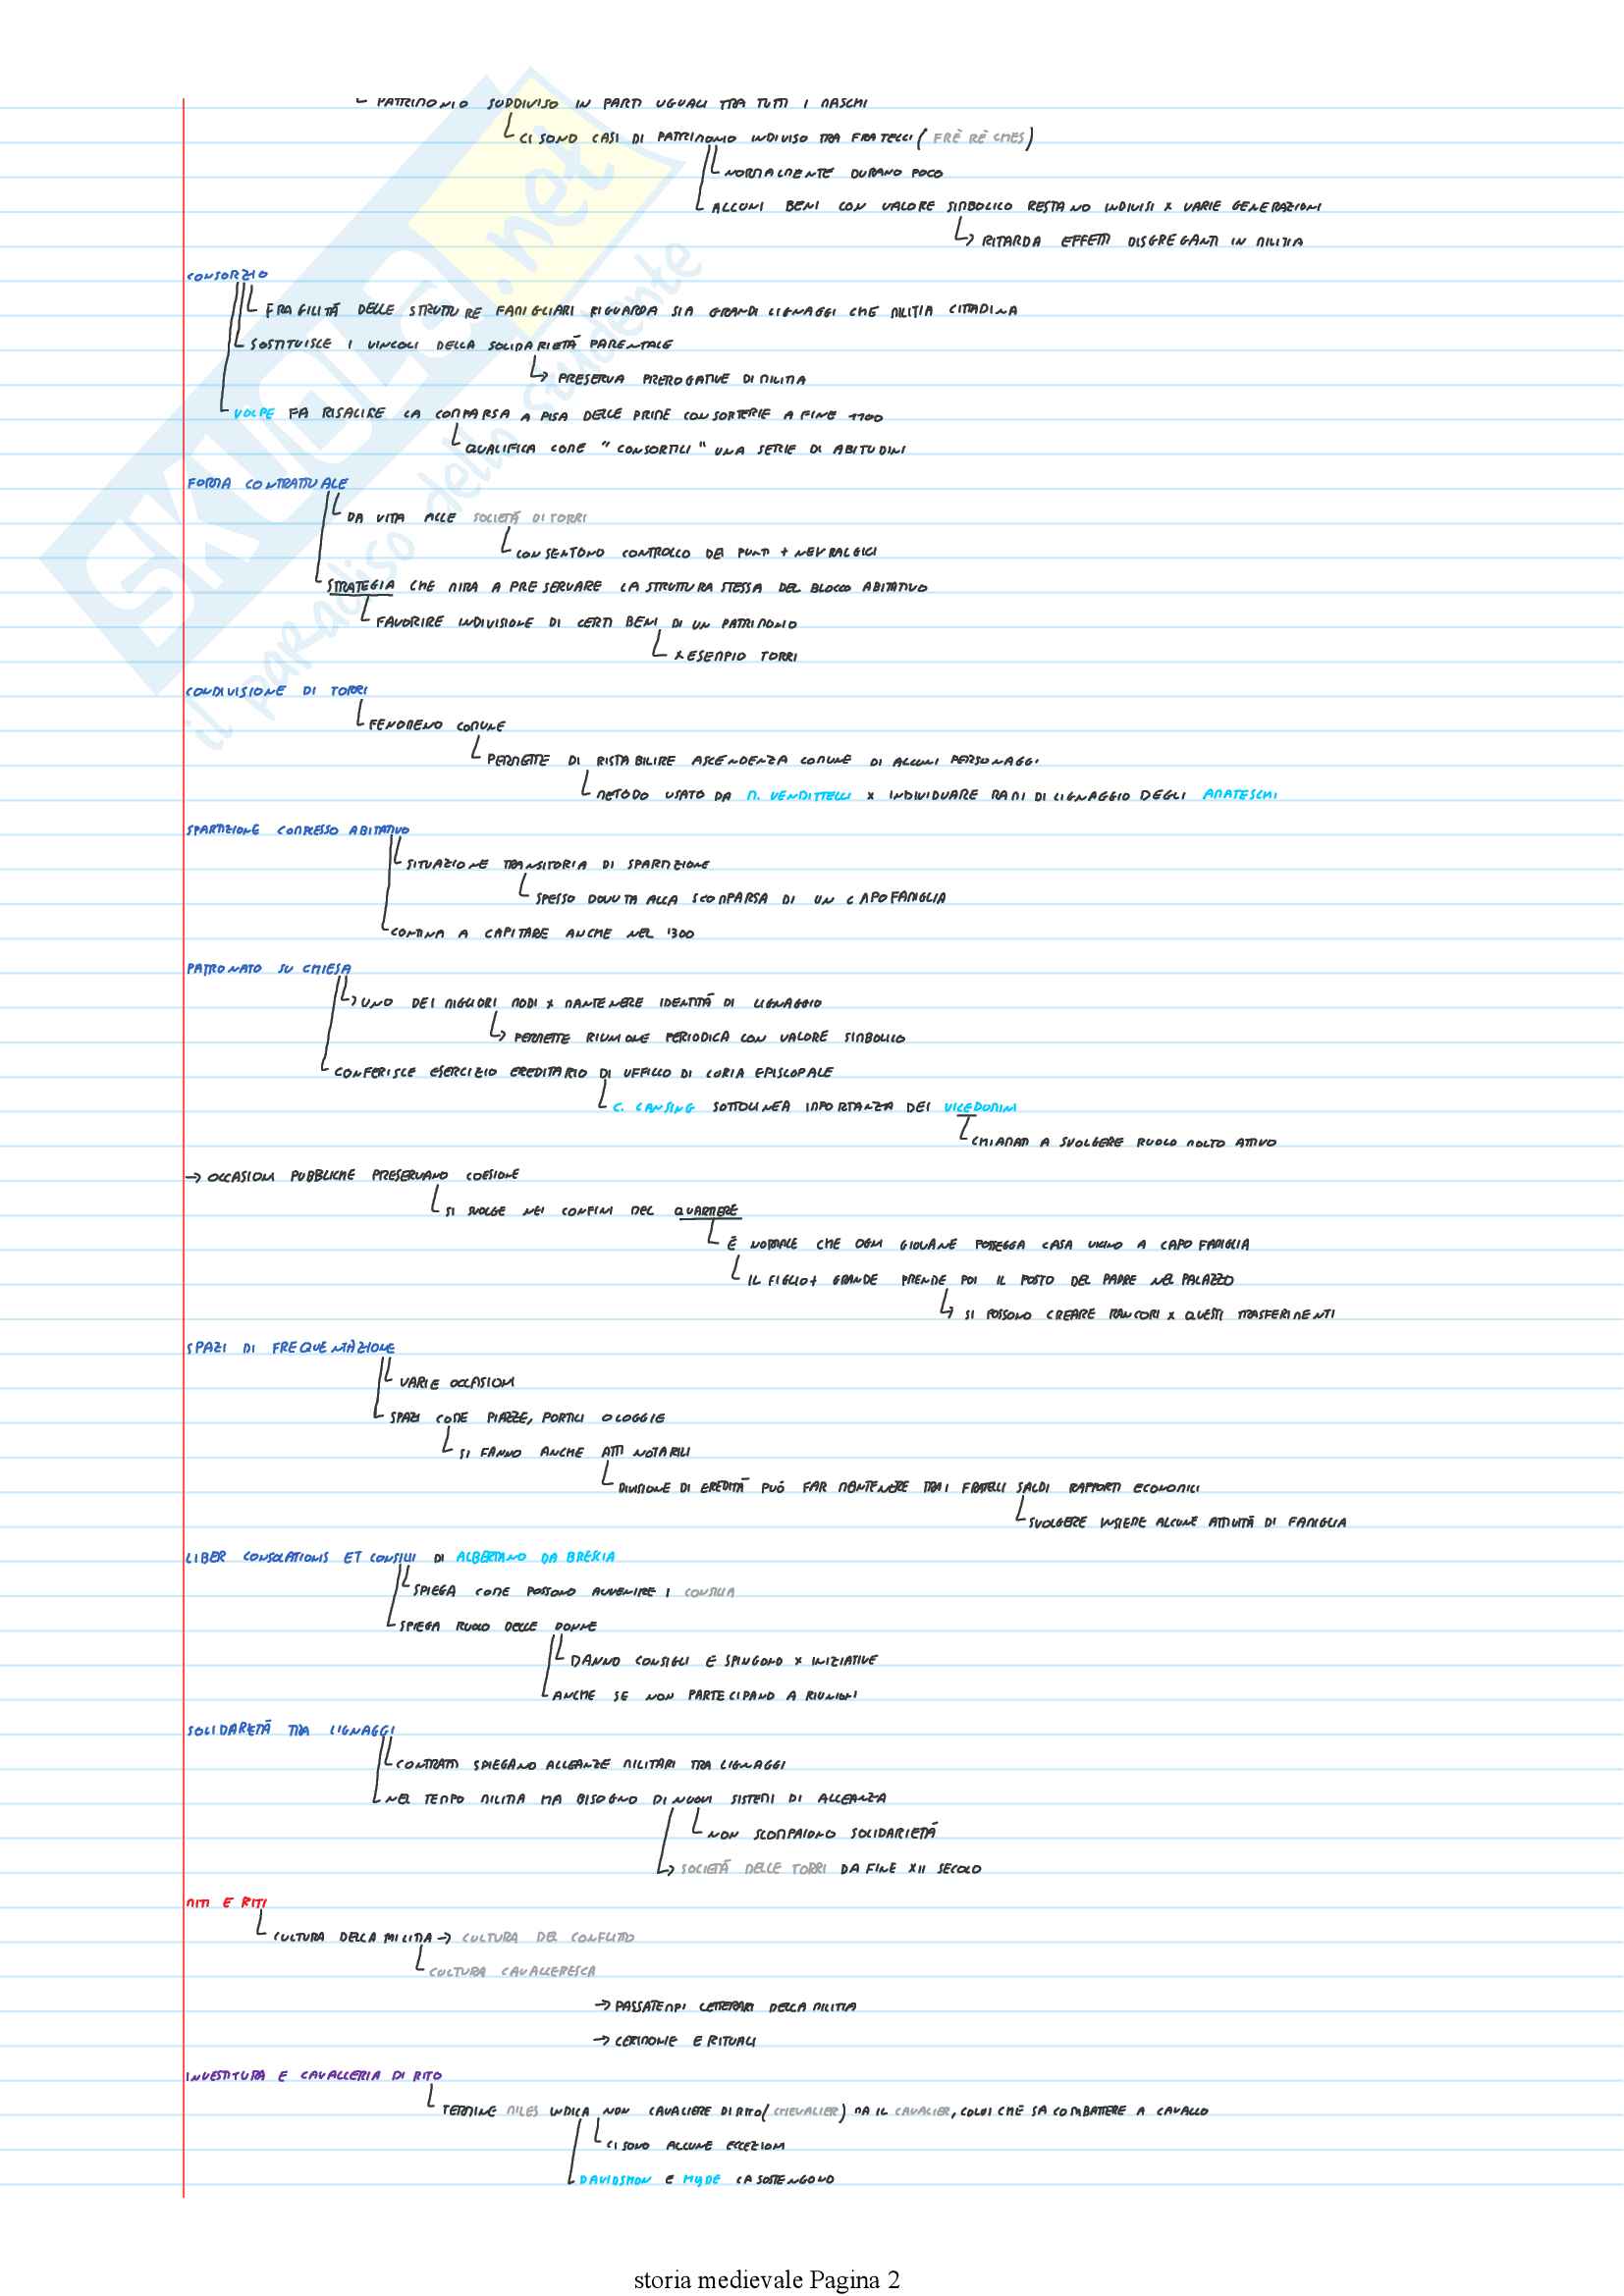 PATRIMONIO SUDDIVISO IN PARTI UGUALI TRA TUTTI I MASCHI
CI SONO CASI DI PATRIMONIO INDIVISO TRA FRATELLI (FRÈ RÈ CHES)
NORMALMENTE DURANO POCO
ALCUNI BENI CON VALORE SIMBOLICO RESTANO INDIVISI X VARIE GENERAZIONI
→ RITARDA EFFETTI DISGREGANTI IN MILITIA
CONSORZIO
FRAGILITÀ DELLE STRUTTURE FAMIGLIARI RIGUARDA SIA GRANDI LIGNAGGI CHE MILITIA CITTADINA
SOSTITUISCE I VINCOLI DELLA SOLIDARIETÀ PARENTALE
→ PRESERVA PREROGATIVE DI MILITIA
VOLPE FA RISALIRE LA COMPARSA A PISA DELLE PRIME CONSORTERIE A FINE 1100
QUALIFICA COME "CONSORTILI" UNA SERIE DI ABITUDINI
FORMA CONTRATTUALE
DA VITA ALLE SOCIETÀ DI TORRI
CONSENTONO CONTROLLO DEI PUNTI + NEVRALGICI
STRATEGIA CHE MIRA A PRESERVARE LA STRUTTURA STESSA DEL BLOCCO ABITATIVO
FAVORIRE INDIVISIONE DI CERTI BENI DI UN PATRIMONIO
X ESEMPIO TORRI
CONDIVISIONE DI TORRI
FENOMENO COMUNE
PERMETTE DI RISTABILIRE ASCENDENZA COMUNE DI ALCUNI PERSONAGGI
METODO USATO DA M. VENDITTELLI X INDIVIDUARE RAMI DI LIGNAGGIO DEGLI AMATESCHI
SPARTIZIONE COMPLESSO ABITATIVO
SITUAZIONE TRANSITORIA DI SPARTIZIONE
SPESSO DOVUTA ALLA SCOMPARSA DI UN CAPOFAMIGLIA
CONTINA A CAPITARE ANCHE NEL '300
PATRONATO SU CHIESA
→ UNO DEI MIGLIORI MODI X MANTENERE IDENTITÀ DI LIGNAGGIO
→ PERMETTE RIUNIONE PERIODICA CON VALORE SIMBOLICO
CONFERISCE ESERCIZIO EREDITARIO DI UFFICIO DI CURIA EPISCOPALE
C. LANSING SOTTOLINEA IMPORTANZA DEI VICEDOMINI
CHIAMATI A SVOLGERE RUOLO MOLTO ATTIVO
→ OCCASIONI PUBBLICHE PRESERVANO COESIONE
SI SVOLGE NEI CONFINI DEL QUARTIERE
È NORMALE CHE OGNI GIOVANE POSSEGGA CASA VICINO A CAPO FAMIGLIA
IL FIGLIO + GRANDE PRENDE POI IL POSTO DEL PADRE NEL PALAZZO
→ SI POSSONO CREARE RANCORI X QUESTI TRASFERIMENTI
SPAZI DI FREQUENTAZIONE
VARIE OCCASIONI
SPAZI COME PIAZZE, PORTICI O LOGGIE
SI FANNO ANCHE ATTI NOTARILI
DIVISIONE DI EREDITÀ PUÒ FAR MANTENERE TRA I FRATELLI SALDI RAPPORTI ECONOMICI
SVOLGERE INSIEME ALCUNE ATTIVITÀ DI FAMIGLIA
LIBER CONSOLATIONIS ET CONSILII DI ALBERTANO DA BRESCIA
SPIEGA COME POSSONO AVVENIRE I CONSILIA
SPIEGA RUOLO DELLE DONNE
DANNO CONSIGLI E SPINGONO X INIZIATIVE
ANCHE SE NON PARTECIPANO A RIUNIONI
SOLIDARIETÀ TRA LIGNAGGI
CONTRATTI SPIEGANO ALLEANZE MILITARI TRA LIGNAGGI
NEL TEMPO MILITIA HA BISOGNO DI NUOVI SISTEMI DI ALLEANZA
NON SCOMPAIONO SOLIDARIETÀ
→ SOCIETÀ DELLE TORRI DA FINE XII SECOLO
MITI E RITI
CULTURA DELLA MILITIA → CULTURA DEL CONFLITTO
CULTURA CAVALLERESCA
→ PASSATEMPI LETTERARI DELLA MILITIA
→ CERIMONIE E RITUALI
INVESTITURA E CAVALLERIA DI RITO
TERMINE MILES INDICA NON CAVALIERE DI RITO (CHEVALIER) MA IL CAVALIER, COLUI CHE SA COMBATTERE A CAVALLO
CI SONO ALCUNE ECCEZIONI
DAVIDSHON E HYDE LA SOSTENGONO
storia medievale Pagina 2
SKUOLA.net
il paradiso dello studente